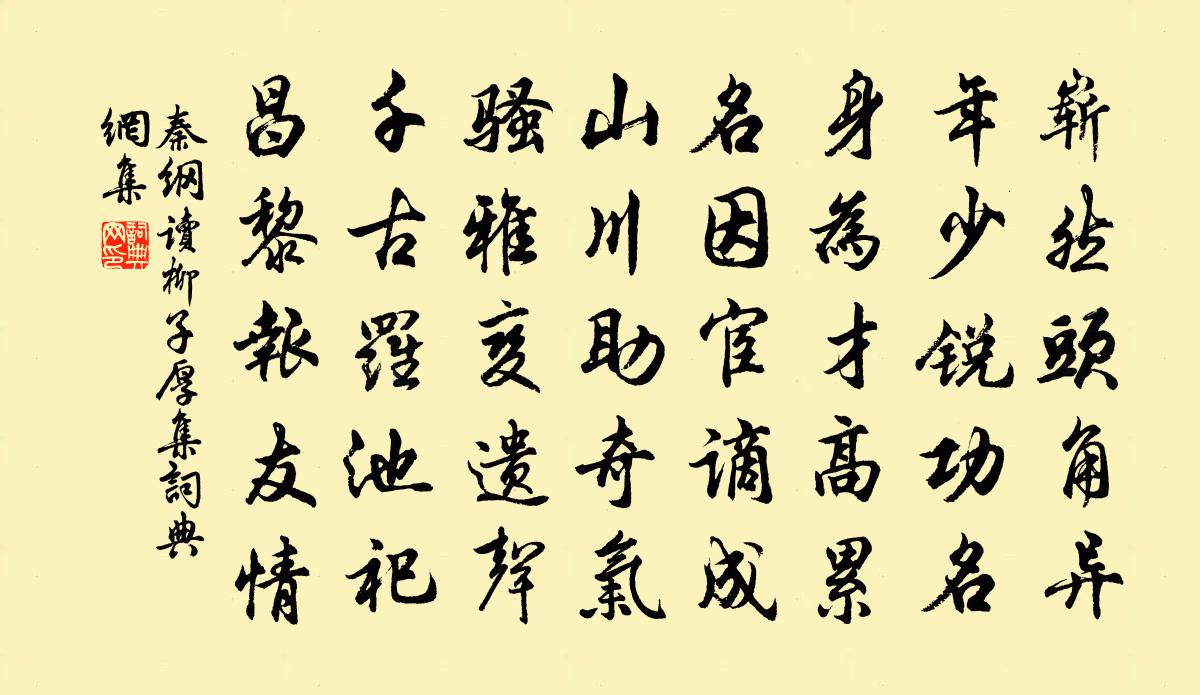 嶄然頭角异
年少銳功名
身為才高累
名因宦謫成
山川助奇氣
騷雅變遺聲
千古羅池祀
昌黎報友情
秦綱讀柳子厚集詞典
網集
詞典
网印